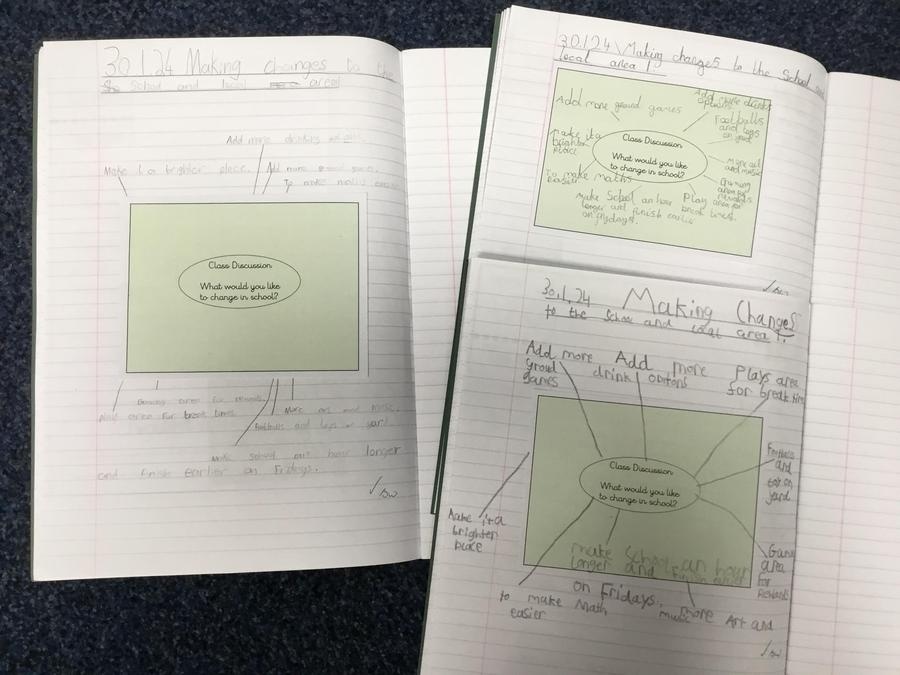 30.1.24 Making changes to the
School and local area!
Add more drinking
Make it a brighter place.
Add more ground games.
To make maths easier
Class Discussion
What would you like
to change in school?
Gaming area for rewards.
Play area for break times.
More art and music.
Footballs and toys on yard.
Make school an hour longer
and finish earlier on Fridays.
30.1.24 Making changes to the School and
local area!
Add more ground games
Add more drinks
options
Footballs
and toys
on yard
Make it a
brighter
place
Class Discussion
What would you like
to change in school?
More art
and music
To make maths
easier
Gaming
area for
rewards
Play
area for
break times.
Make School an hour
longer and finish earlier
on frydays.
30.1.24 Making Changes
to the School and local area!
Add more
groud
games
Add more
drink options
Plays area
for break time
Class Discussion
What would you like
to change in school?
and
on
yard
Make it a
brighter
place
area
for
Rewards
make School an hour
longer and finish earlier
on Fridays.
to make Math
easier
more Art and
music